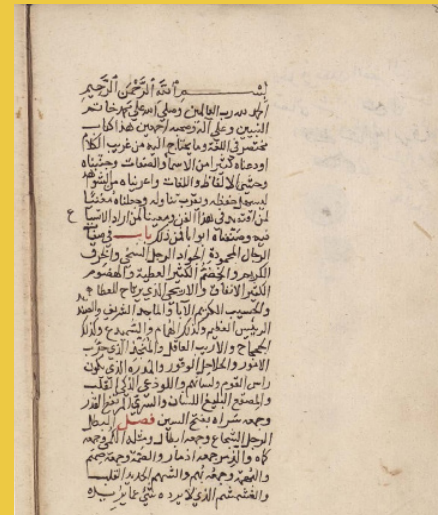 بسم الله الرحمن الرحيم
الحمد لله رب العالمين وصلى الله على محمد خاتم
النبيين وعلى آله وصحبه أجمعين هذا كتاب
مختصر في اللغة وما يحتاج اليه من غريب الكلام
اودعناه كثيرا من الاسما والصفات وجنبناه
حشي الالفاظ واللغات واعريناه من الشواهد
ليسهل حفظه ويقرب تناوله وجعلناه مغنيا
لمن اقتصد في هذا الفن ومعينا لمن اراد الاتساع
فيه وصنفناه ابوابا فمن ذلك باب في صفات
الرجال المحمودة الجواد الرجل السخي والخرق
الكريم والخضم الكثير العطية والهضوم
الكثير الانفاق والاريحي الذي يرتاح للعطاء
والحسيب الكريم الآباء والماجد الشريف والصنديد
الرئيس العظيم وكذلك الهمام والسميدع وكذلك
الجحجاح والاريب العاقل والمنجذ الذي جرب
الامور والحلاحل الوقور والمدره الذي يكون
راس القوم ولسانهم واللوذعي الذكي القلب
والمصقع البليغ اللسان والسري المرتفع القدر
وجمعه سراه بفتح السين فصل البطل
الرجل الشجاع وجمعه ابطال ومثله الكمي وجمعه
كماه والذمر وجمعه اذمار والصمة وجمعه صمم
والبهمة وجمعه بهم والشهم الحديد القلب
والغشمشم الذي لا يرده شيء عما يريده